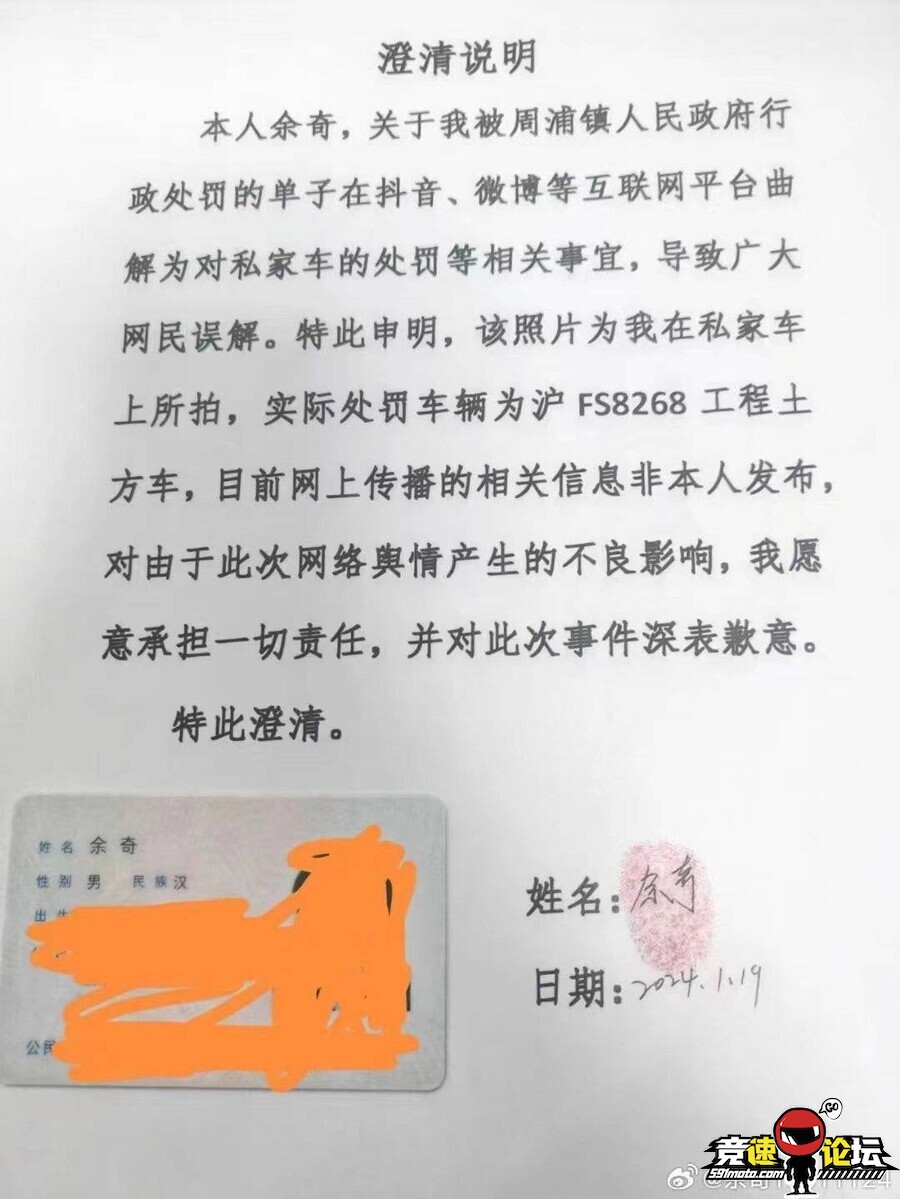 澄清说明
本人余奇，关于我被周浦镇人民政府行
政处罚的单子在抖音、微博等互联网平台曲
解为对私家车的处罚等相关事宜，导致广大
网民误解。特此申明，该照片为我在私家车
上所拍，实际处罚车辆为沪 FS8268 工程土
方车，目前网上传播的相关信息非本人发布，
对由于此次网络舆情产生的不良影响，我愿
意承担一切责任，并对此次事件深表歉意。
特此澄清。
姓名 余奇
性别 男 民族 汉
出生
公民
姓名：余奇
日期：2024.1.19
GO
竞速论坛
591moto.com